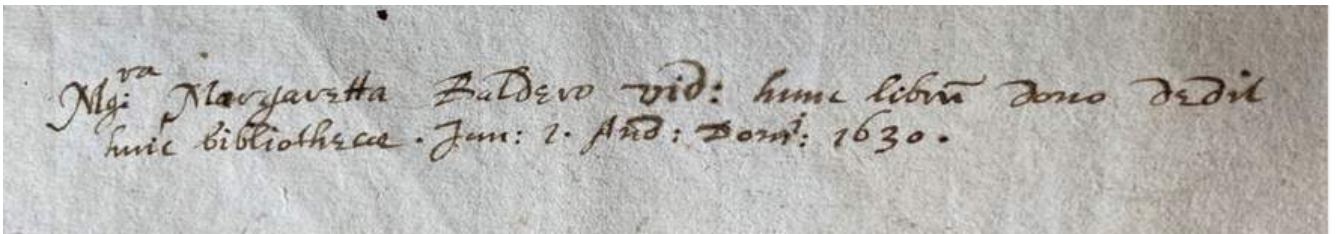 Mg:ra Margaretta Baldero vid: hunc librū dono dedit
huic bibliothecæ. Jan: 1. Año: Domi: 1630.